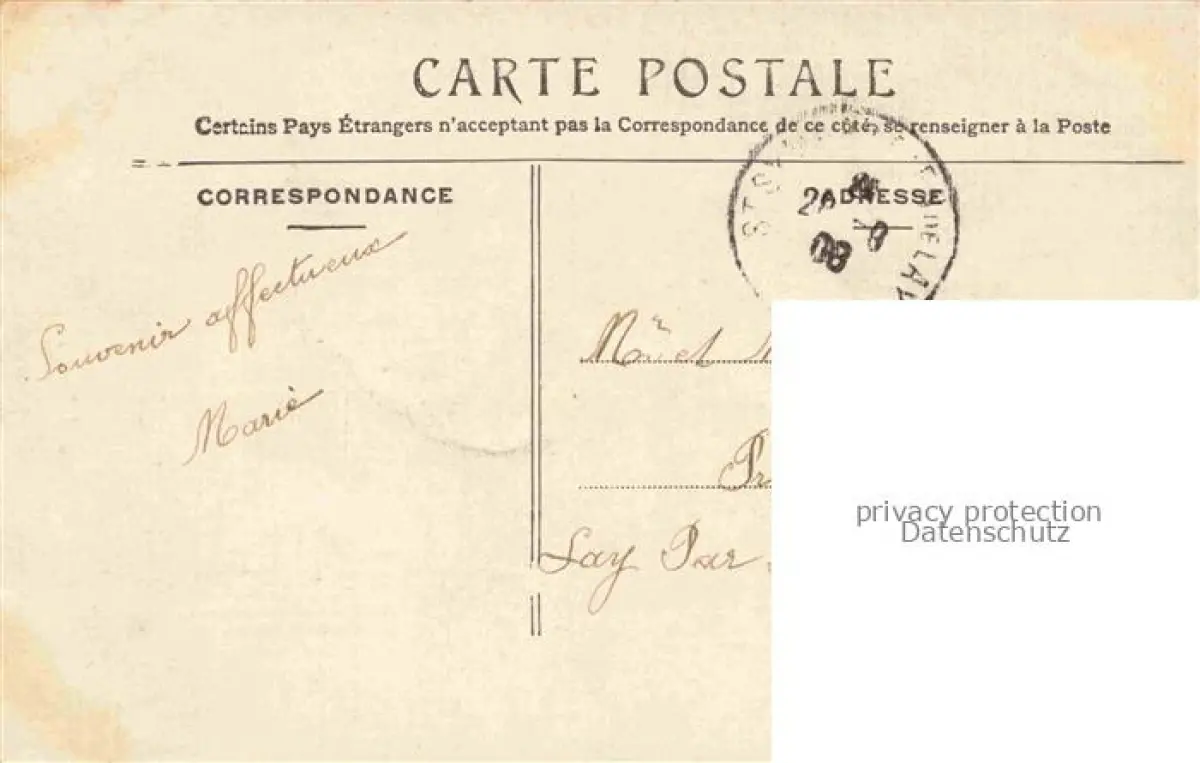 CARTE POSTALE
Certains Pays Étrangers n'acceptant pas la Correspondance de ce côté, se renseigner à la Poste
CORRESPONDANCE
ADRESSE
Souvenir affectueux
Marie
Mr et
Lay Par
privacy protection
Datenschutz